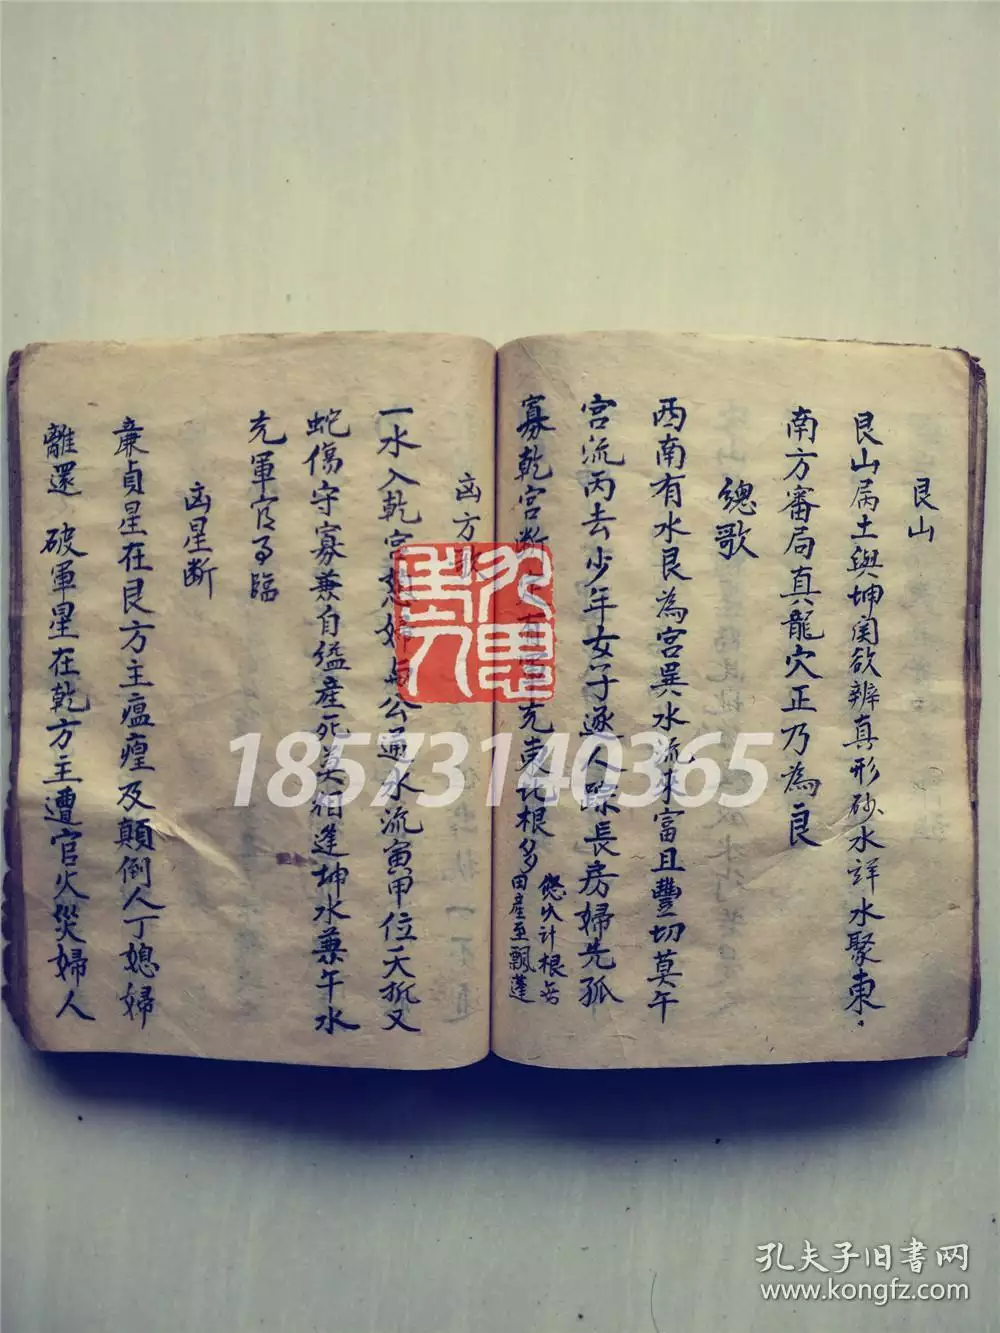 艮山
艮山属土與坤闰欲辨真形砂水詳水聚東
南方審局真龍穴正乃為良
總歌
西南有水艮為宮巽水流來富且豐切莫午
宮流丙去少年女子逐人踪長房婦先孤
寡乾宮断充東化根多
田産至飄蓬
凶方
一水入乾宮公通水流寅甲位夭孤又
蛇傷守寡兼自縊産死莫相逢坤水兼午水
充軍官臨
凶星断
亷貞星在艮方主瘟瘟及顛倒人丁媳婦
離還 破軍星在乾方主遭官火災婦人
18573140365
孔夫子旧書网
www.kongfz.com